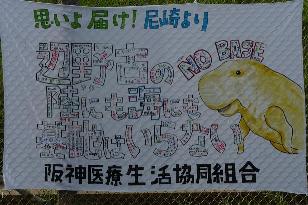 思いよ届け! 尼崎より
辺野古の NO BASE
陸にも海にも
基地はいらない
阪神医療生活協同組合